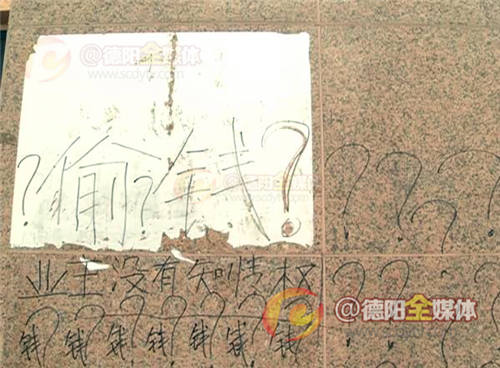 @德阳全媒体
www.scdytv.com
?偷?钱? ????
业主没有知情权??
@德阳全媒体
钱?钱?钱?钱?钱?钱?钱?